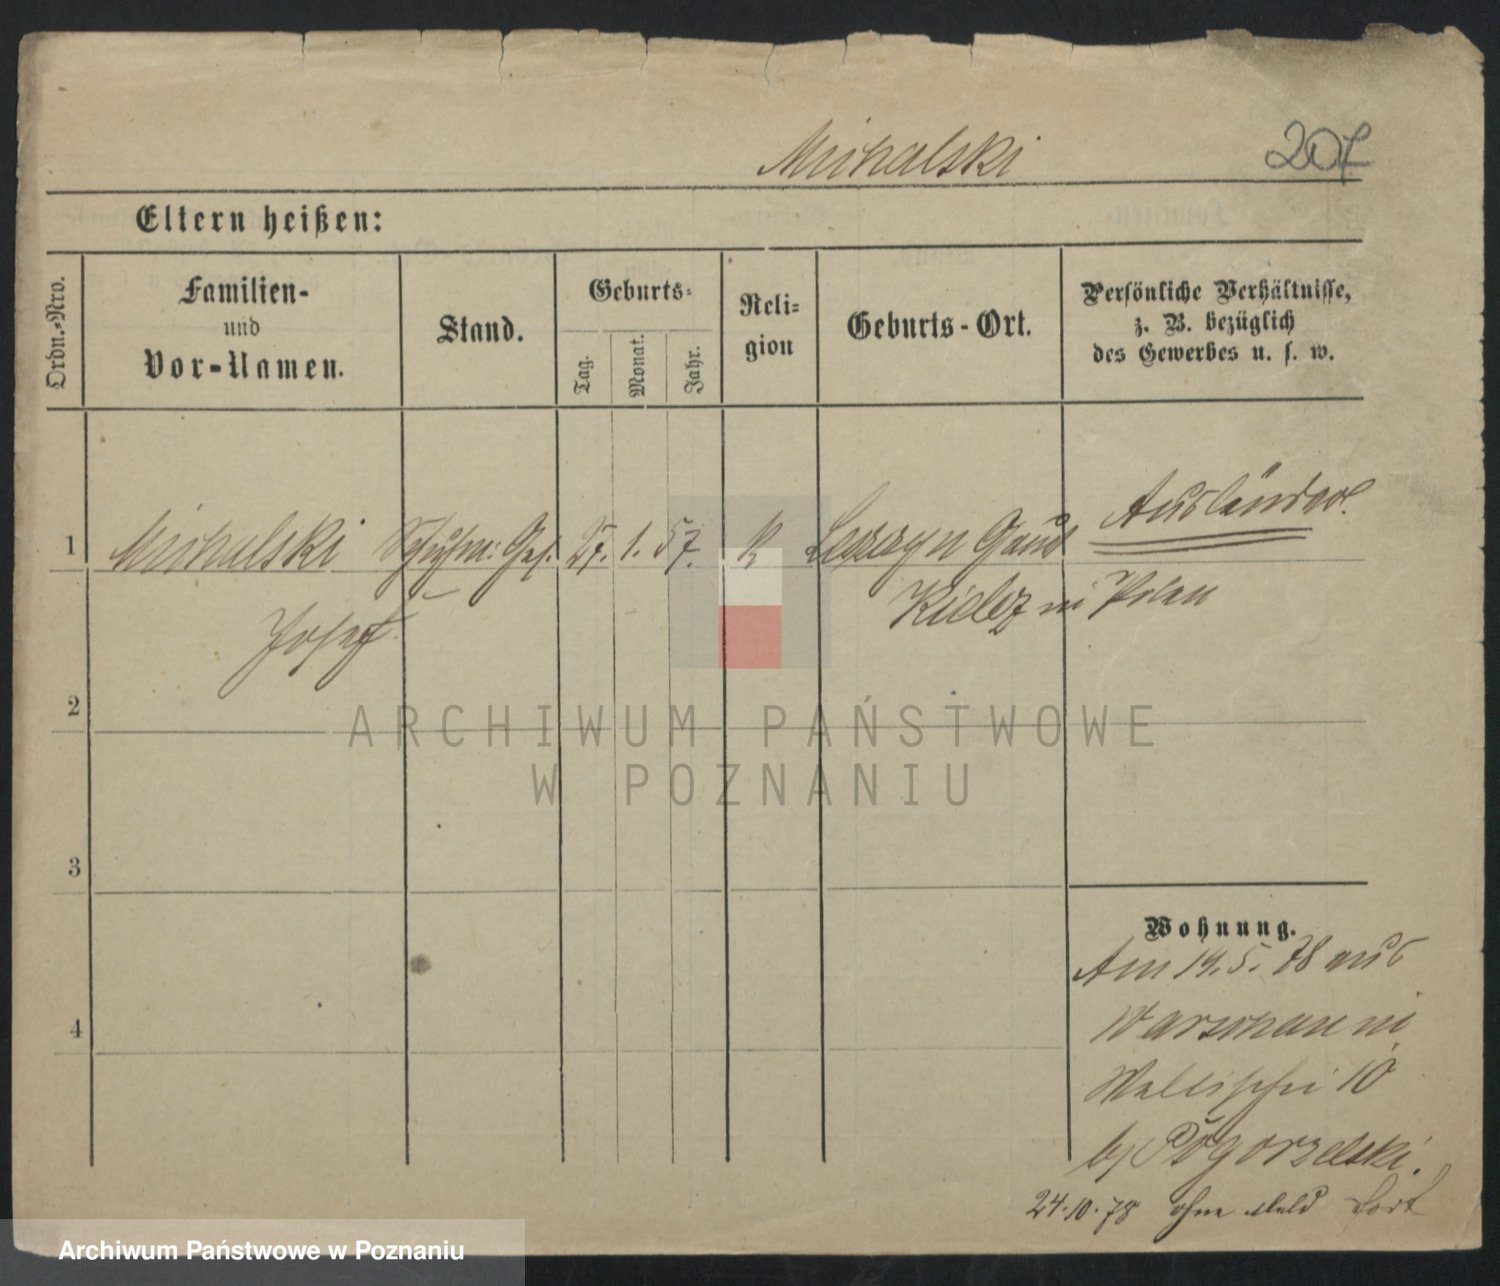 Michalski
207
Eltern heißen:
Ordn.-Nro.
Familien-
und
Vor-Namen.
Stand.
Geburts-
Tag.
Monat.
Jahr.
Reli-
gion
Geburts-Ort.
Persönliche Verhältnisse,
z. B. bezüglich
des Gewerbes u. s. w.
Ausländer.
1 Michalski Schuhm: Ges. 27. 1. 57. K Gouv
Josef Kielz in Polen
2
3
4
Wohnung.
Am 14. 5. 78 aus
Warschau in
Wallischei 10
b/ Pogorzelski.
24.10.78 ohne Meld fort
ARCHIWUM PAŃSTWOWE
W POZNANIU
Archiwum Państwowe w Poznaniu